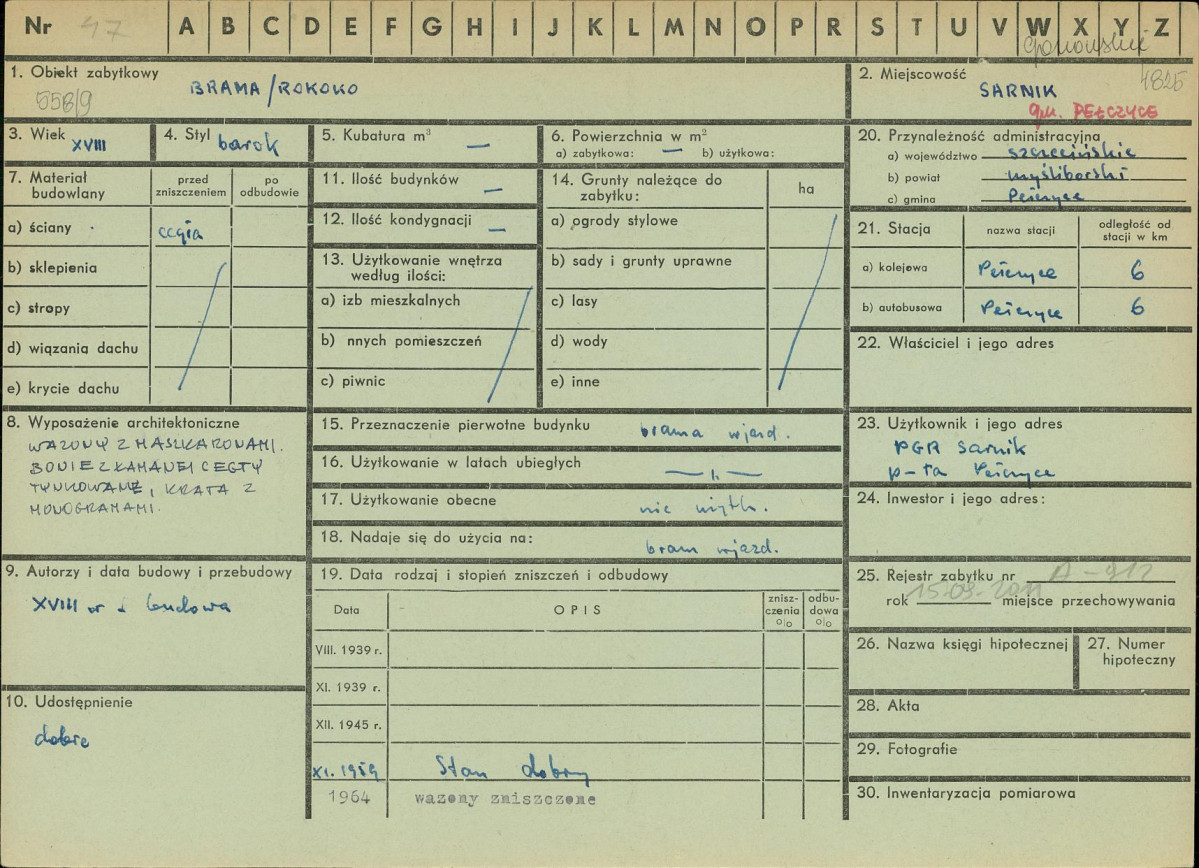 Nr 47 A B C D E F G H I J K L M N O P R S T U V W X Y Z
1. Obiekt zabytkowy
BRAMA/ROKOKO
558/9
2. Miejscowość
4825
SARNIK
gm. PEŁCZYCE
3. Wiek XVIII
4. Styl barok
5. Kubatura m³ —
6. Powierzchnia w m²
a) zabytkowa: — b) użytkowa:
20. Przynależność administracyjna
a) województwo szczecińskie
b) powiat myśliborski
c) gmina Pełczyce
7. Materiał budowlany
przed zniszczeniem
po odbudowie
a) ściany cegła
b) sklepienia
c) stropy
d) wiązania dachu
e) krycie dachu
11. Ilość budynków —
12. Ilość kondygnacji —
13. Użytkowanie wnętrza
według ilości:
a) izb mieszkalnych
b) nnych pomieszczeń
c) piwnic
14. Grunty należące do
zabytku:
ha
a) ogrody stylowe
b) sady i grunty uprawne
c) lasy
d) wody
e) inne
21. Stacja
nazwa stacji
odległość od
stacji w km
a) kolejowa Pełczyce 6
b) autobusowa Pełczyce 6
22. Właściciel i jego adres
8. Wyposażenie architektoniczne
WAZONY Z MASZKARONAMI.
BONIE Z ŁAMANEJ CEGŁY
TYNKOWANE, KRATA Z
MONOGRAMAMI.
15. Przeznaczenie pierwotne budynku brama wjazd.
16. Użytkowanie w latach ubiegłych — „ —
17. Użytkowanie obecne nie użytk.
18. Nadaje się do użycia na: bram wjazd.
23. Użytkownik i jego adres
PGR Sarnik
p-ta Pełczyce
24. Inwestor i jego adres:
9. Autorzy i data budowy i przebudowy
XVIII w budowa
10. Udostępnienie
dobre
19. Data rodzaj i stopień zniszczeń i odbudowy
Data
OPIS
znisz-
czenia
%
odbu-
dowa
%
VIII. 1939 r.
XI. 1939 r.
XII. 1945 r.
XI. 1959 Stan dobry
1964 wazony zniszczone
25. Rejestr zabytku nr A-912
rok 15-09-2011 miejsce przechowywania
26. Nazwa księgi hipotecznej
27. Numer
hipoteczny
28. Akta
29. Fotografie
30. Inwentaryzacja pomiarowa